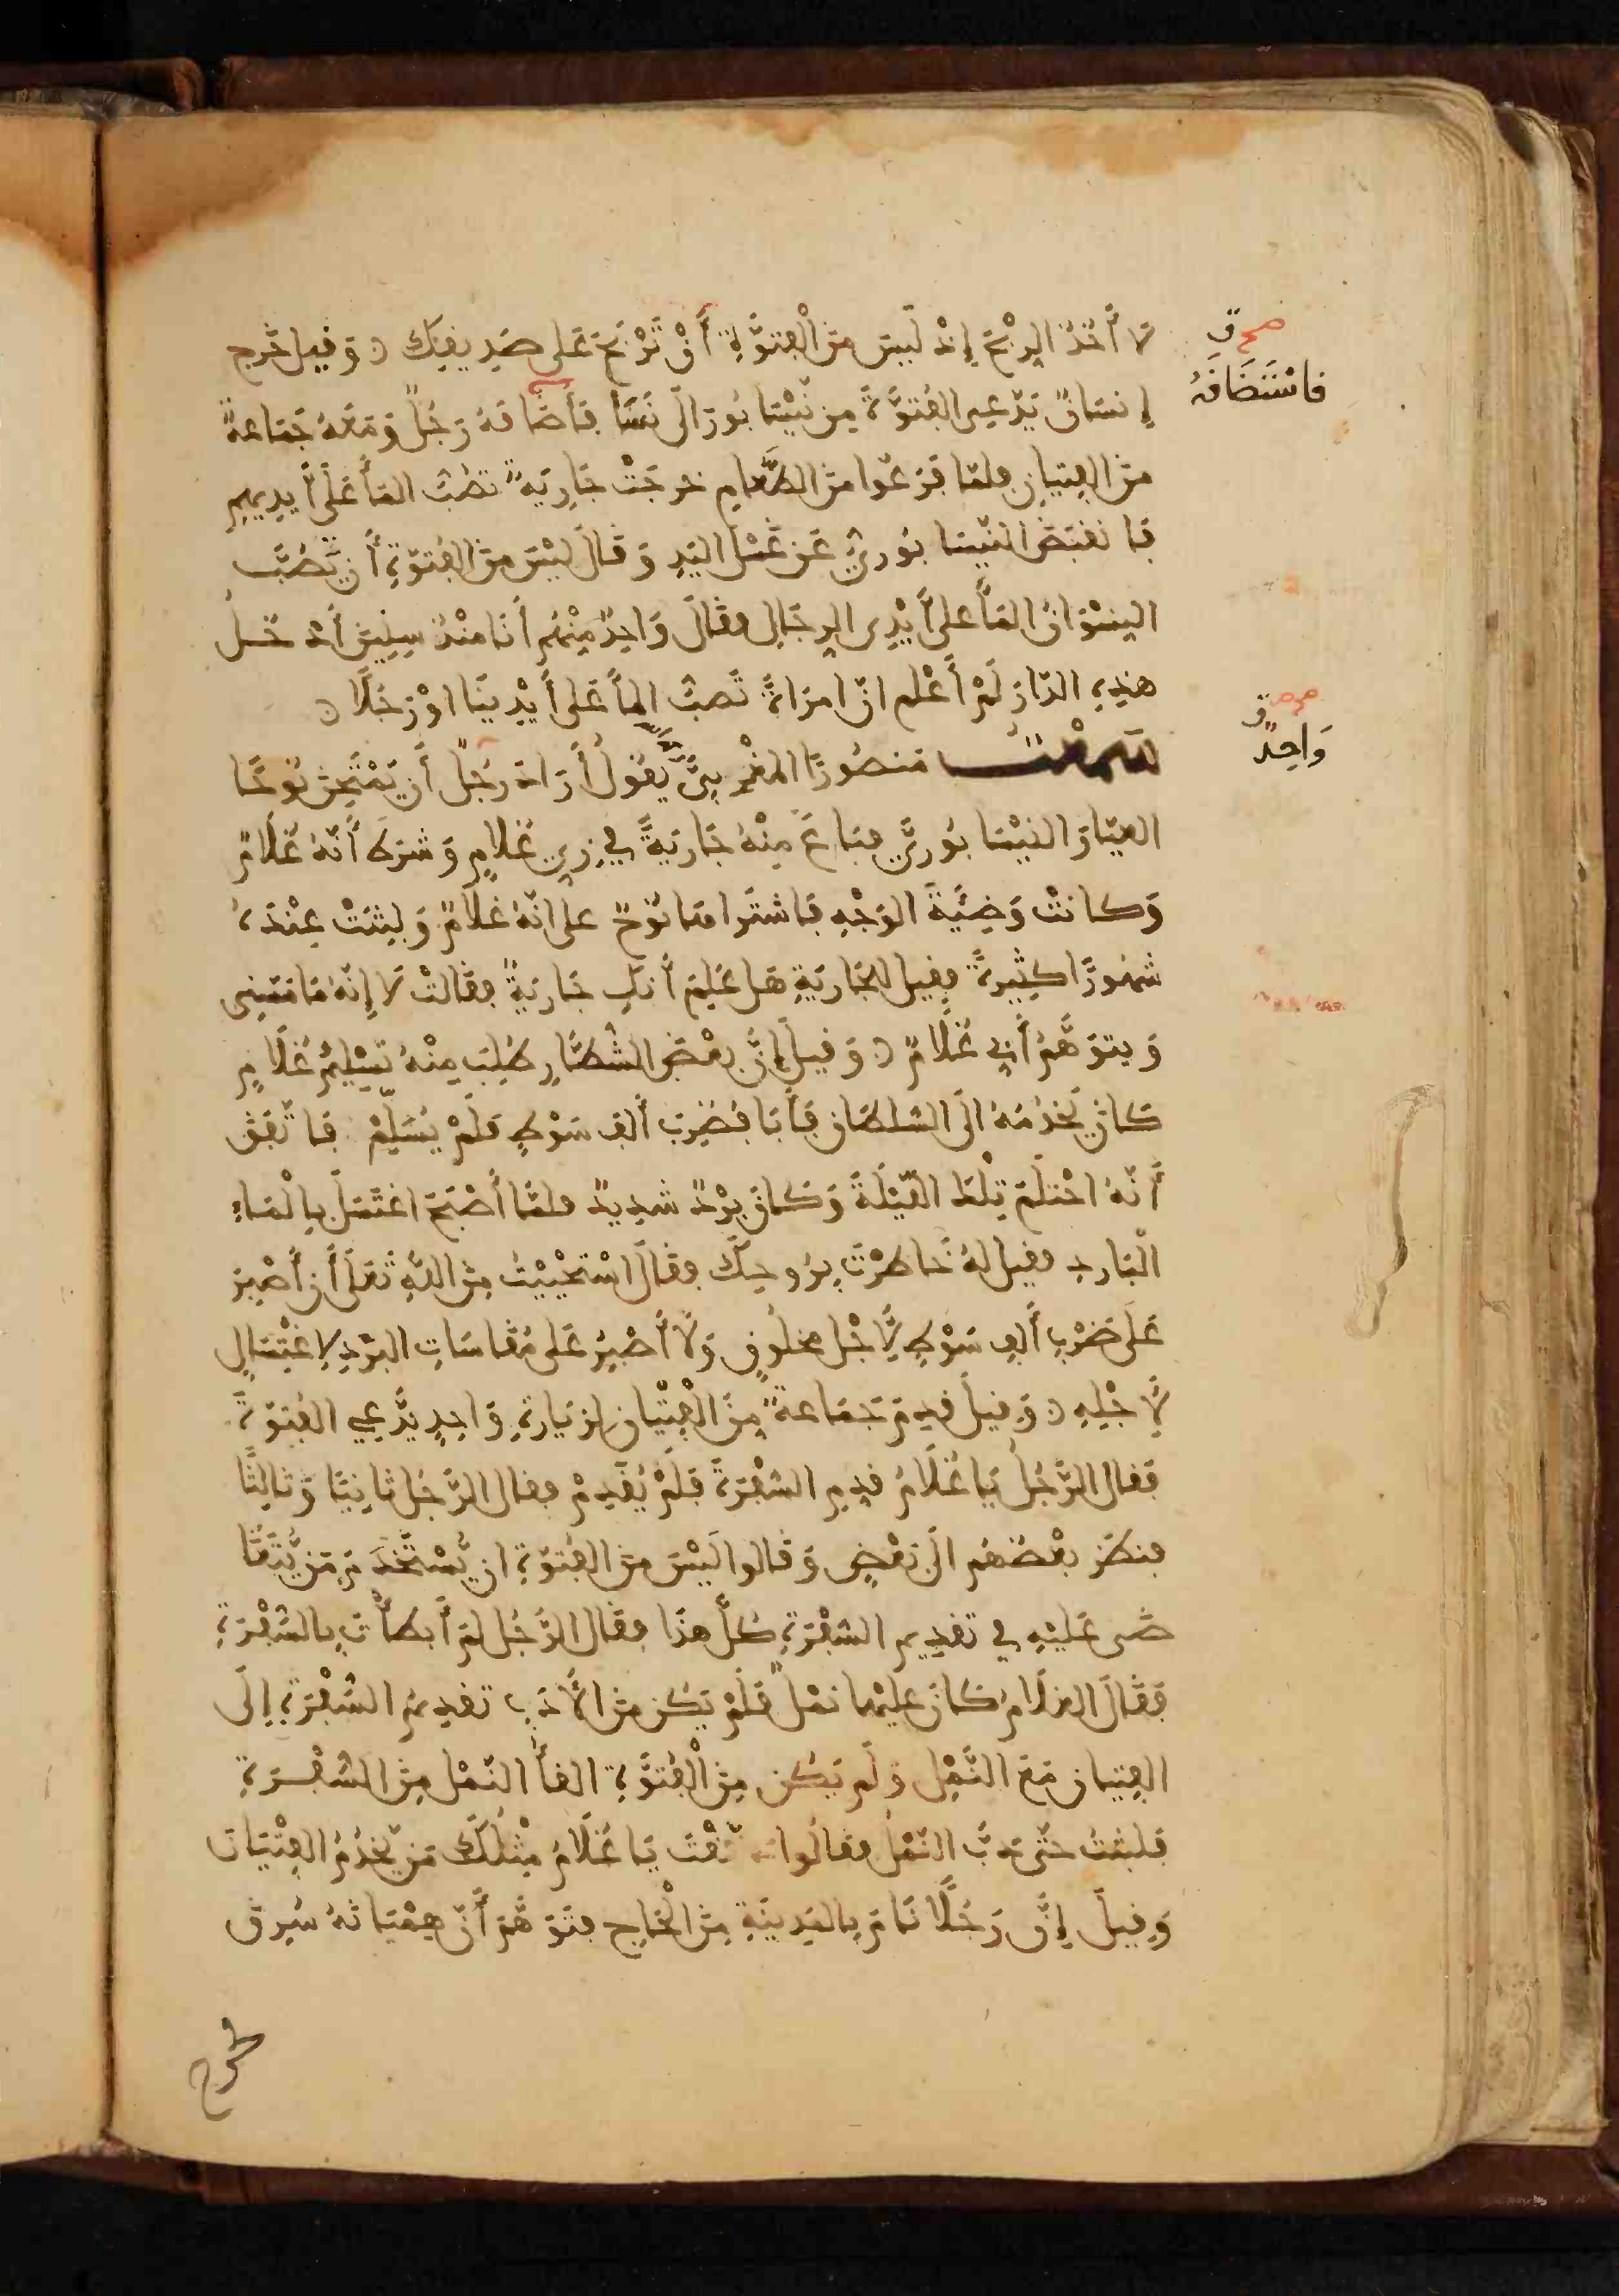 لَا أَخُذُ الرِّبْحَ إِذْ لَيْسَ مِنَ الْفُتُوَّةِ أَنْ تَرْبَحَ عَلَى صَدِيقِكَ وَقِيلَ خَرَجَ
صح ق
فَاسْتَضَافَهُ
إِنسَانٌ يَدَّعِي الفُتُوَّةَ مِن نَّيْسَابُورَ الَى نَسَا فَأَضَافَهُ رَجُلٌ وَمَعَهُ جَمَاعَةٌ
مِنَ الفِتْيَانِ فلمّا فَرَغُوا مِنَ الطَّعَامِ خرجَتْ جَارِيَةٌ تَصُبُّ المَأَ عَلَى أَيدِيهِمِ
فَانقَبَضَ النَّيْسَابُورِيُّ عَن غَسْلِ اليَدِ وَقَالَ لَيْسَ مِنَ الفُتُوَّةِ أَن تَصُبَّ
النِسْوَانُ المَأَ عَلَى أَيْدِي الرِجَالِ فقَالَ وَاحِدٌ مِنْهُم أَنَا مُنْذُ سِنِينَ أَدْخـــلُ
هَذِهِ الدَّارَ لَمْ أَعْلم انّ امرَاةً تَصبُّ المأَ عَلَى أَيْدِينَا اوْ رَجُلًا
صح ق
وَاحِدٌ
سَمِعْتُ مَنصُورًا المَغْرِبِيَّ يَقُولُ أَرَادَ رَجُلٌ أَن يَمْتَحِنَ نُوحًا
العيّارَ النَّيْسَابُورِيَّ فبَاعَ مِنْهُ جَارِيَةً فِي زِيِّ غُلَامٍ وَشَرَطَ أَنَّهُ غُلَامٌ
وَكَانَتْ وَضِيَّةَ الوَجْهِ فَاشتَراهَا نُوحٌ على انّهُ غُلَامٌ وَلَبِثَتْ عِنْدَهُ
شهُورًا كثِيرةً فقيل لِلْجَارِيَةِ هَل عَلِمَ أَنَّكِ جَارِيَةٌ فقَالَتْ لَا إِنَّهُ مَا مَسَّنِى
وَيتَوَهَّمُ أَنِّي غُلَامٌ وَقِيلَ إِنَّ بَعْضَ الشُّطَّارِ طُلِبَ مِنْهُ تَسْلِيمُ غُلَامٍ
كَانَ يَخْدُمُهُ الَى السّلطَانِ فَأَبَا فَضُرِبَ أَلفَ سَوْطٍ فَلَمْ يُسَلِّمْ فَاتَّفَقَ
أَنَّهُ احْتَلَمَ تِلْكَ اللّيْلَةَ وَكَانَ بَرْدٌ شَدِيدٌ فلمَّا أَصْبَحَ اغتَسَلَ بِالْمَاءِ
الْبَارِدِ فقيل لَهُ خَاطرْتَ بِرُوحِكَ فقَالَ اسْتَحْيَيْتُ مِنَ اللَّهِ تَعَلَى أَن أَصْبِرَ
عَلَى ضَرْبِ أَلفِ سَوْطٍ لِأَجْلِ مخلُوقٍ وَلَا أَصْبِرُ عَلَى مُقَاسَاتِ البَرْدِ لاِغتِسَالٍ
لِأَجْلِهِ وَقِيلَ قدِمَ جَمَاعَةٌ مِنَ الْفِتْيَانِ لزِيَارَةِ وَاحِدٍ يَدَّعِي الفُتُوَّةَ
فَقَالَ الرَّجُلُ يَا غُلَامُ قدِّمِ السُّفْرَةَ فَلَمْ يُقَدِّمْ فقال الرَّجُلُ ثَانِيًا وَثَالِثًا
فنظَرَ بعْضُهُم الَى بَعْضٍ وَقَالوا لَيْسَ مِنَ الفُتُوّةِ ان يَّسْتَخْدِمَ مَن يَّتَعَّا
صَى عَلَيْهِ فِي تقدِيمِ السُّفْرَةِ كُلَّ هَذَا فقَالَ الرَّجُلُ لمَ أَبطأْتَ بِالسُّفْرَةِ
فَقَالَ الغلَامُ كَانَ عليْهَا نمْلٌ فَلَمْ يَكُن مِنَ الأَدَبِ تقدِيمُ السُّفْرَةِ إِلَى
الفِتيانِ مَعَ النَّمْلِ وَلَم يَكُن مِنَ الْفُتُوَّةِ القَأُ النَّمْل مِنَ السُّفْـــرَةِ
فَلبِثتُ حَتَّى دَبَّ النّمْلُ فقالُوا دَقَّقْتَ يَا غُلَامُ مِثْلُكَ مَن يَّخْدُمُ الفِتْيَانَ
وَقِيلَ إِنَّ رَجُلًا نَامَ بِالمَدِينَةِ مِنَ الْحَاجِّ فتَوَهَّمَ أَنَّ هِمْيَانَهُ سُرِقَ